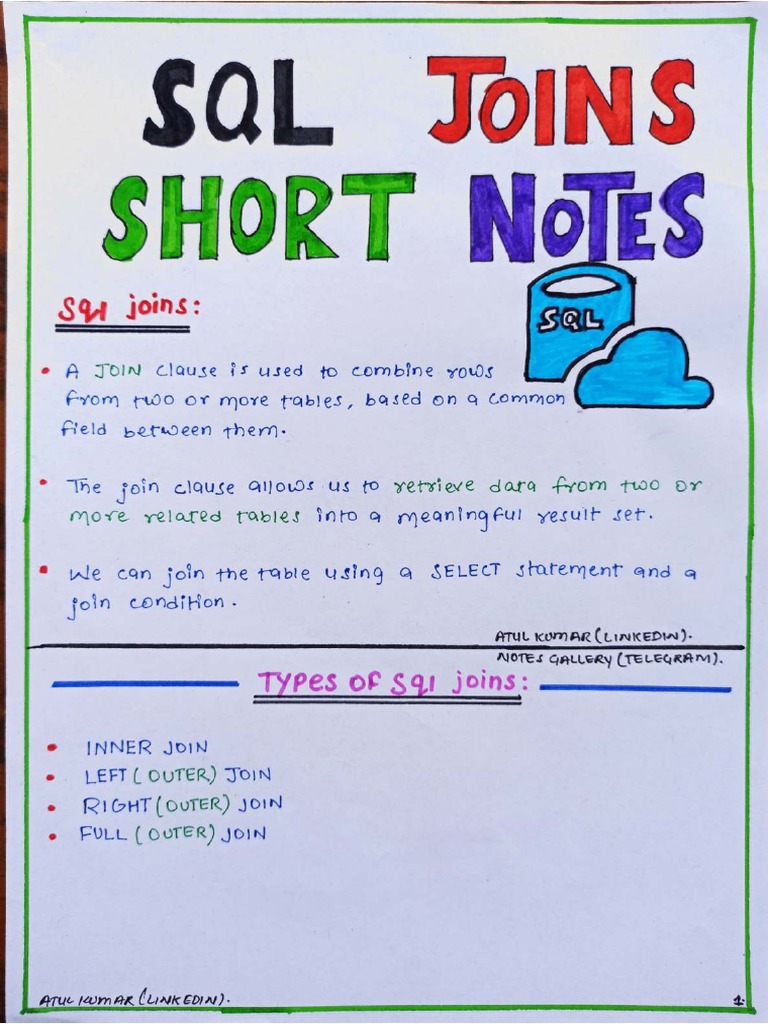 SQL JOINS
SHORT NOTES
Sql joins:
SQL
• A JOIN clause is used to combine rows
from two or more tables, based on a common
field between them.
• The join clause allows us to retrieve data from two or
more related tables into a meaningful result set.
• We can join the table using a SELECT statement and a
join condition.
ATUL KUMAR (LINKEDIN).
NOTES GALLERY (TELEGRAM).
TYPES OF Sql joins:
• INNER JOIN
• LEFT (OUTER) JOIN
• RIGHT (OUTER) JOIN
• FULL (OUTER) JOIN
ATUL KUMAR (LINKEDIN).
1.